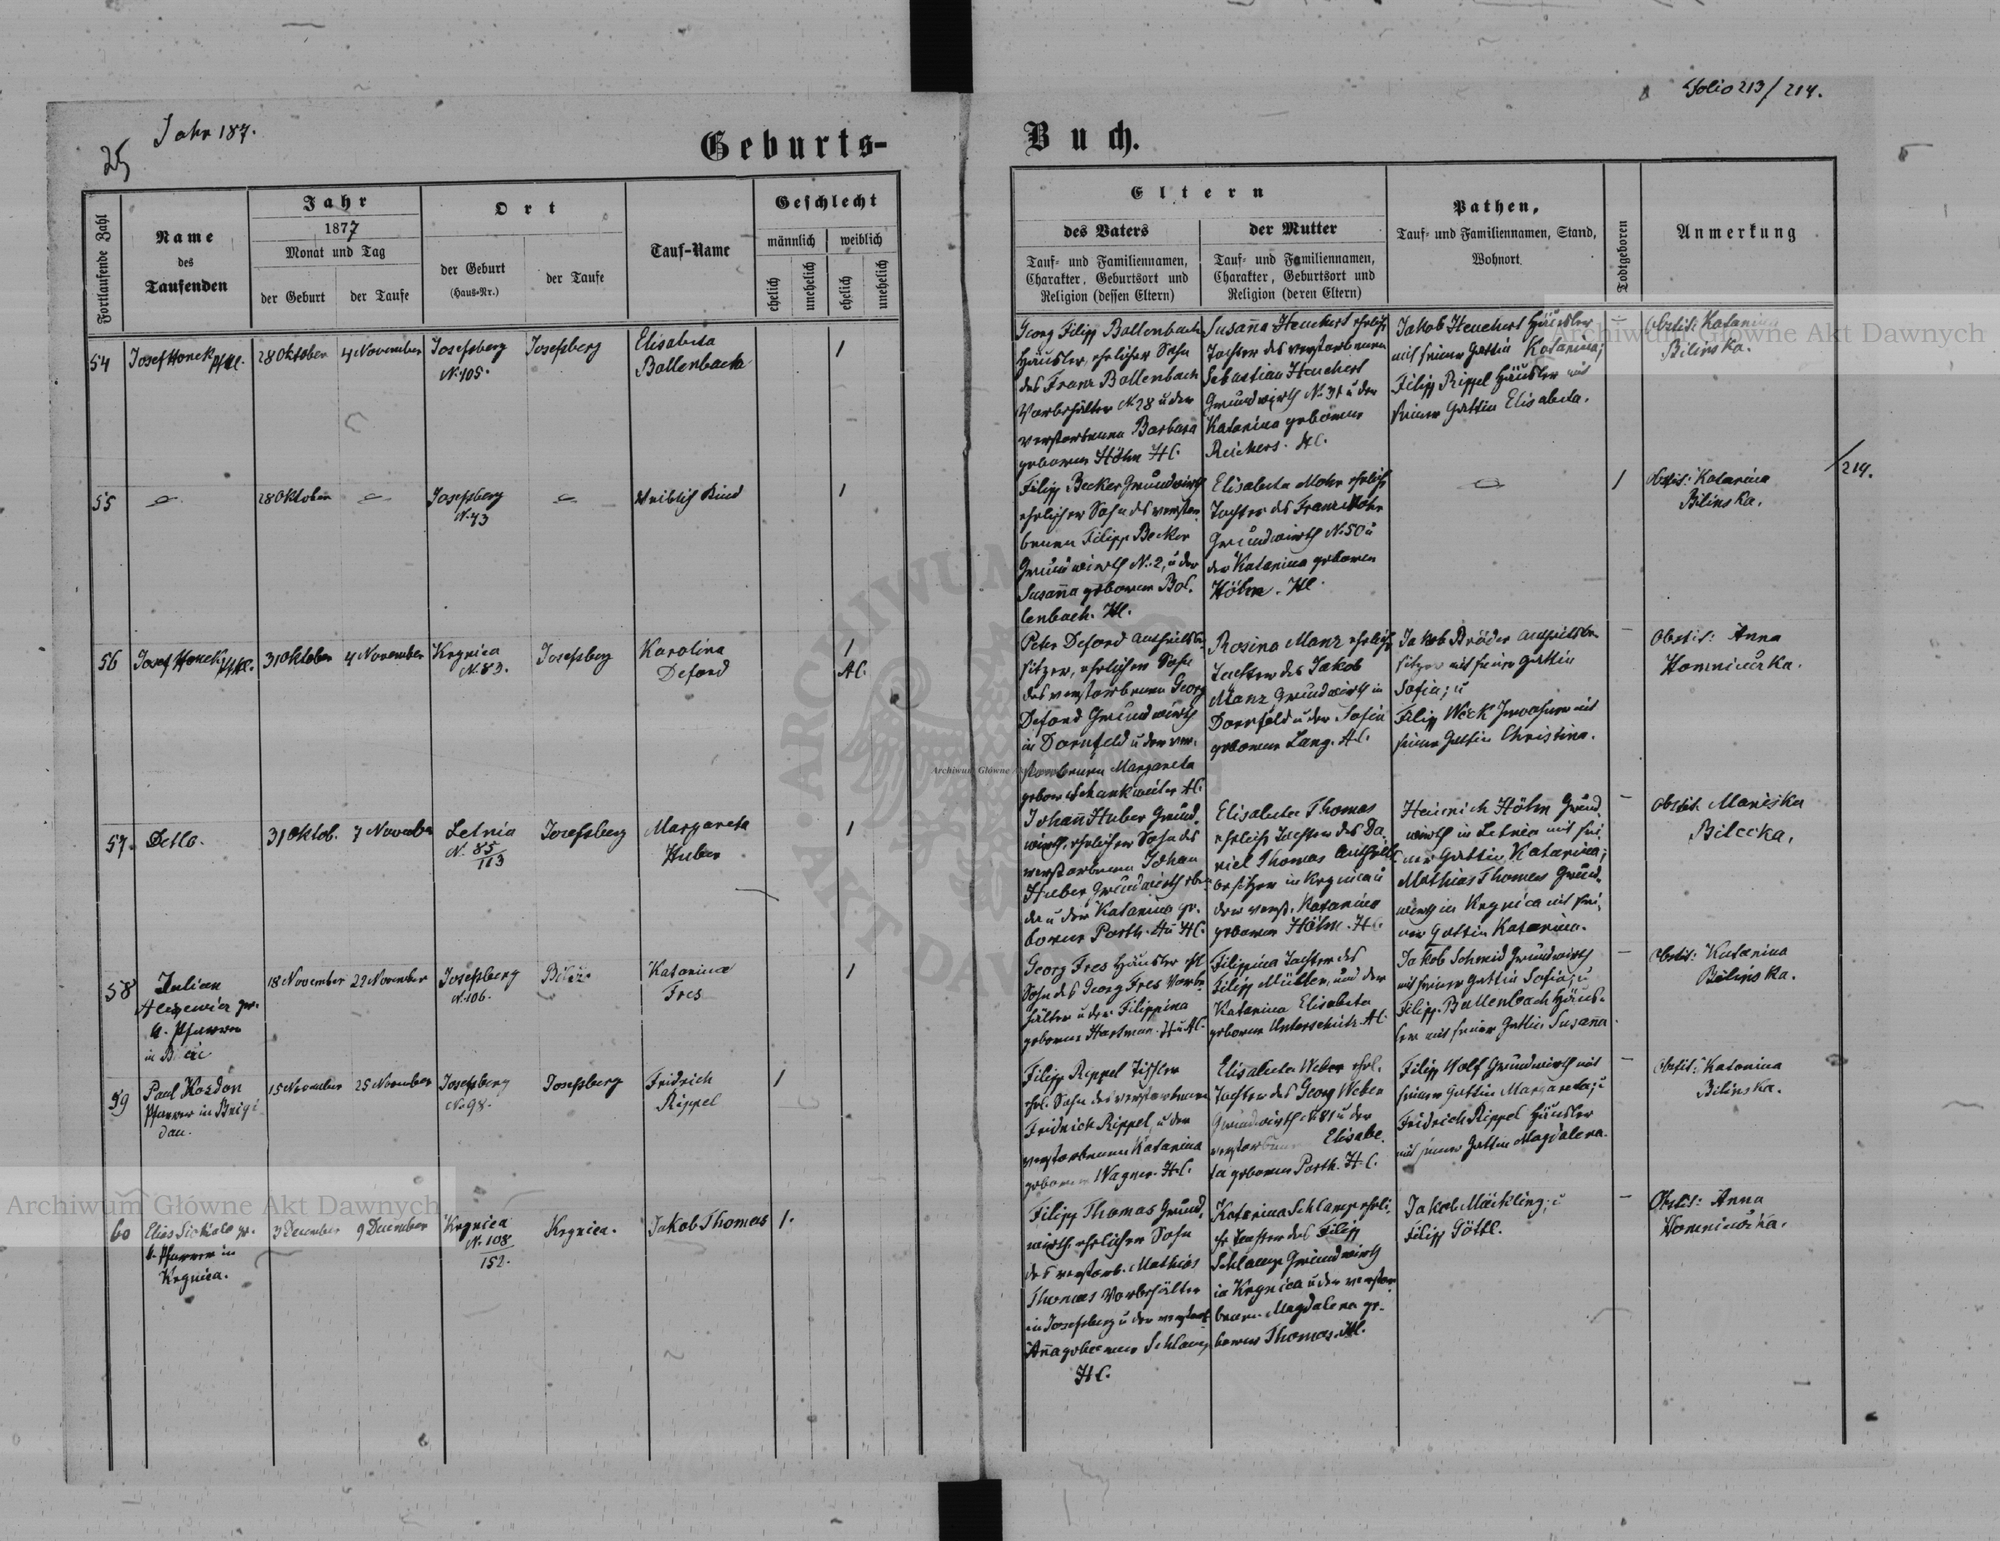 Folio 213/214.
Jahr 187.
25
Geburts-Buch.
Fortlaufende Zahl
Name
des
Taufenden
Jahr
1877
Monat und Tag
der Geburt
der Taufe
Ort
der Geburt
(Haus-Nr.)
der Taufe
Tauf-Name
Geschlecht
männlich
weiblich
ehelich
unehelich
ehelich
unehelich
Eltern
des Vaters
Tauf- und Familiennamen,
Charakter, Geburtsort und
Religion (dessen Eltern)
der Mutter
Tauf- und Familiennamen,
Charakter, Geburtsort und
Religion (deren Eltern)
Pathen,
Tauf- und Familiennamen, Stand,
Wohnort.
Todtgeboren
Anmerkung
54
Josef Honek
28 Oktober
4 November
Josefsberg
N. 105.
Josefsberg
Elisabeta
Bollenbach
1
Georg Filipp Bollenbach
Häusler, ehelicher Sohn
des Franz Bollenbach
Vorbehälter N. 28 u der
verstorbenen Barbara
geborene Höhn HC.
Susanna Heuchert ehelich
Tochter des verstorbenen
Sebastian Heuchert
Grundwirth N. 31 u der
Katarina geborene
Reichers. HC.
Jakob Heuchert Häusler
mit seiner Gattin Katarina;
Filipp Rippel Häusler mit
seiner Gattin Elisabeta.
—
Obstit: Katarina
Bilinska.
/214.
55
28 Oktober
Josefsberg
N. 43
Weiblich Kind
1
Filipp Becker Grundwirth
ehelicher Sohn des verstor-
benen Filipp Becker
Grundwirth N. 2, u der
Susanna geborene Bol-
lenbach. HC.
Elisabeta Mohr ehelich
Tochter des Franz Mohr
Grundwirth N. 50 u
der Katarina geboren
Höhn. HC.
1
Obstit: Katarina
Bilinska.
56
Josef Honek
31 Oktober
4 November
Kegnica
N. 83.
Josefsberg
Karolina
Deford
1
AC.
Peter Deford Antheilsbe-
sitzer, ehelicher Sohn
des verstorbenen Georg
Deford Grundwirth
in Dornfeld u der ver-
storbenen Margareta
Rosina Manz ehelich
Tochter des Jakob
Manz Grundwirth in
Dornfeld u der Sofia
geborene Lang. AC.
Jakob Bräder Antheilsbe-
sitzer mit seiner Gattin
Sofia; u
Filipp Weck mit
seiner Gattin Christina.
—
Obstit: Anna
57.
Detto.
31 Oktob.
7 November
Letnia
N. 85/113
Josefsberg
Margareta
Huber
1
Johann Huber Grund-
wirth, ehelicher Sohn des
verstorbenen Johan
Huber Grundwirth eben-
da u der Katarina ge-
borene Porth. Au HC.
Elisabeta Thomas
eheliche Tochter des Da-
niel Thomas Antheils-
besitzer in Kegnica u
der verst. Katarina
geborene Höhn. HC.
Heinrich Höhn Grund-
wirth in Letnia mit sei-
ner Gattin Katarina;
Mathias Thomas Grund-
wirth in Kegnica mit sei-
ner Gattin Katarina.
—
Obstit. Mariska
Bilecka.
58
Julian
gr.
k. Pfarrer
in
18 November
29 November
Josefsberg
N. 106.
Katarina
Fres
1
Georg Fres Häusler ehl
Sohn des Georg Fres Vorbe-
hälter u der Filippina
geborene Hartman. H u AC.
Filippina Tochter des
Filipp Müller und der
Katarina Elisabeta
geborene Unterschütz. AC
Jakob Schmid Grundwirth
mit seiner Gattin Sofia; u
Filipp Bollenbach Häus-
ler mit seiner Gattin Susanna.
—
Obstit: Katarina
Bilinska.
59
Paul Kozdon
Pfarrer in Brigi-
dau.
15 November
25 November
Josefsberg
N. 98.
Josefsberg
Fridrich
Rippel
1
Filipp Rippel Tischler
ehl. Sohn des verstorbenen
Fridrich Rippel, u der
verstorbenen Katarina
geborene Wagner. H.C.
Elisabeta Weber ehel.
Tochter des Georg Weber
Grundwirth N. 81 u der
verstorbenen Elisabe-
ta geborene Porth. H.C.
Filipp Wolf Grundwirth mit
seiner Gattin Margareta; u
Fridrich Rippel Häusler
mit seiner Gattin Magdalena.
—
Obstit: Katarina
Bilinska.
60
Elias gr.
k. Pfarrer in
Kegnica.
3 December
9 December
Kegnica
N. 108/152.
Kegnica.
Jakob Thomas
1.
Filipp Thomas Grund-
wirth, ehelicher Sohn
des verstorb. Mathias
Thomas Vorbehälter
in Josefsberg u der verstorb.
Anna geborene Schlamp
HC.
Katarina Schlamp eheli-
che Tochter des Filipp
Schlamp Grundwirth
in Kegnica u der verstor-
benen Magdalena ge-
borene Thomas. HC.
Jakob Mäckling; u
Filipp Göttel.
—
Obstit: Anna
Archiwum Główne Akt Dawnych
Archiwum Główne Akt Dawnych
Archiwum Główne Akt Dawnych